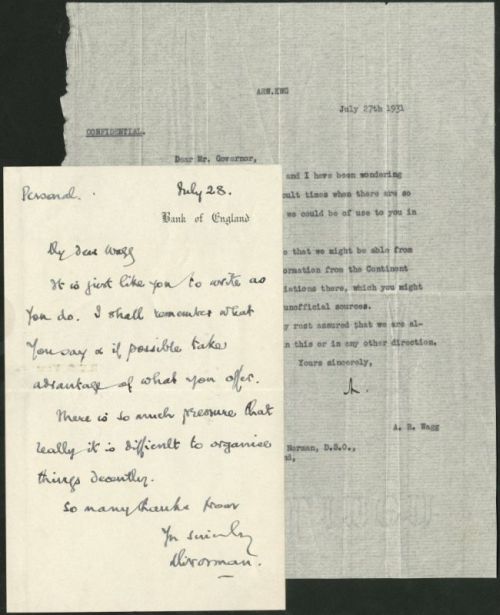 ARW.KWG
July 27th 1931
CONFIDENTIAL.
Dear Mr. Governor,
and I have been wondering
cult times when there are so
we could be of use to you in
e that we might be able from
formation from the Continent
iations there, which you might
unofficial sources.
y rest assured that we are al-
n this or in any other direction.
Yours sincerely,
A. R. Wagg
Norman, D.S.O.,
Personal.
July 28.
Bank of England
My dear Wagg
It is just like you to write as
you do. I shall remember what
you say & if possible take
advantage of what you offer.
There is so much pressure that
really it is difficult to organise
things decently.
So many thanks from
Yr sincerely
MNorman.